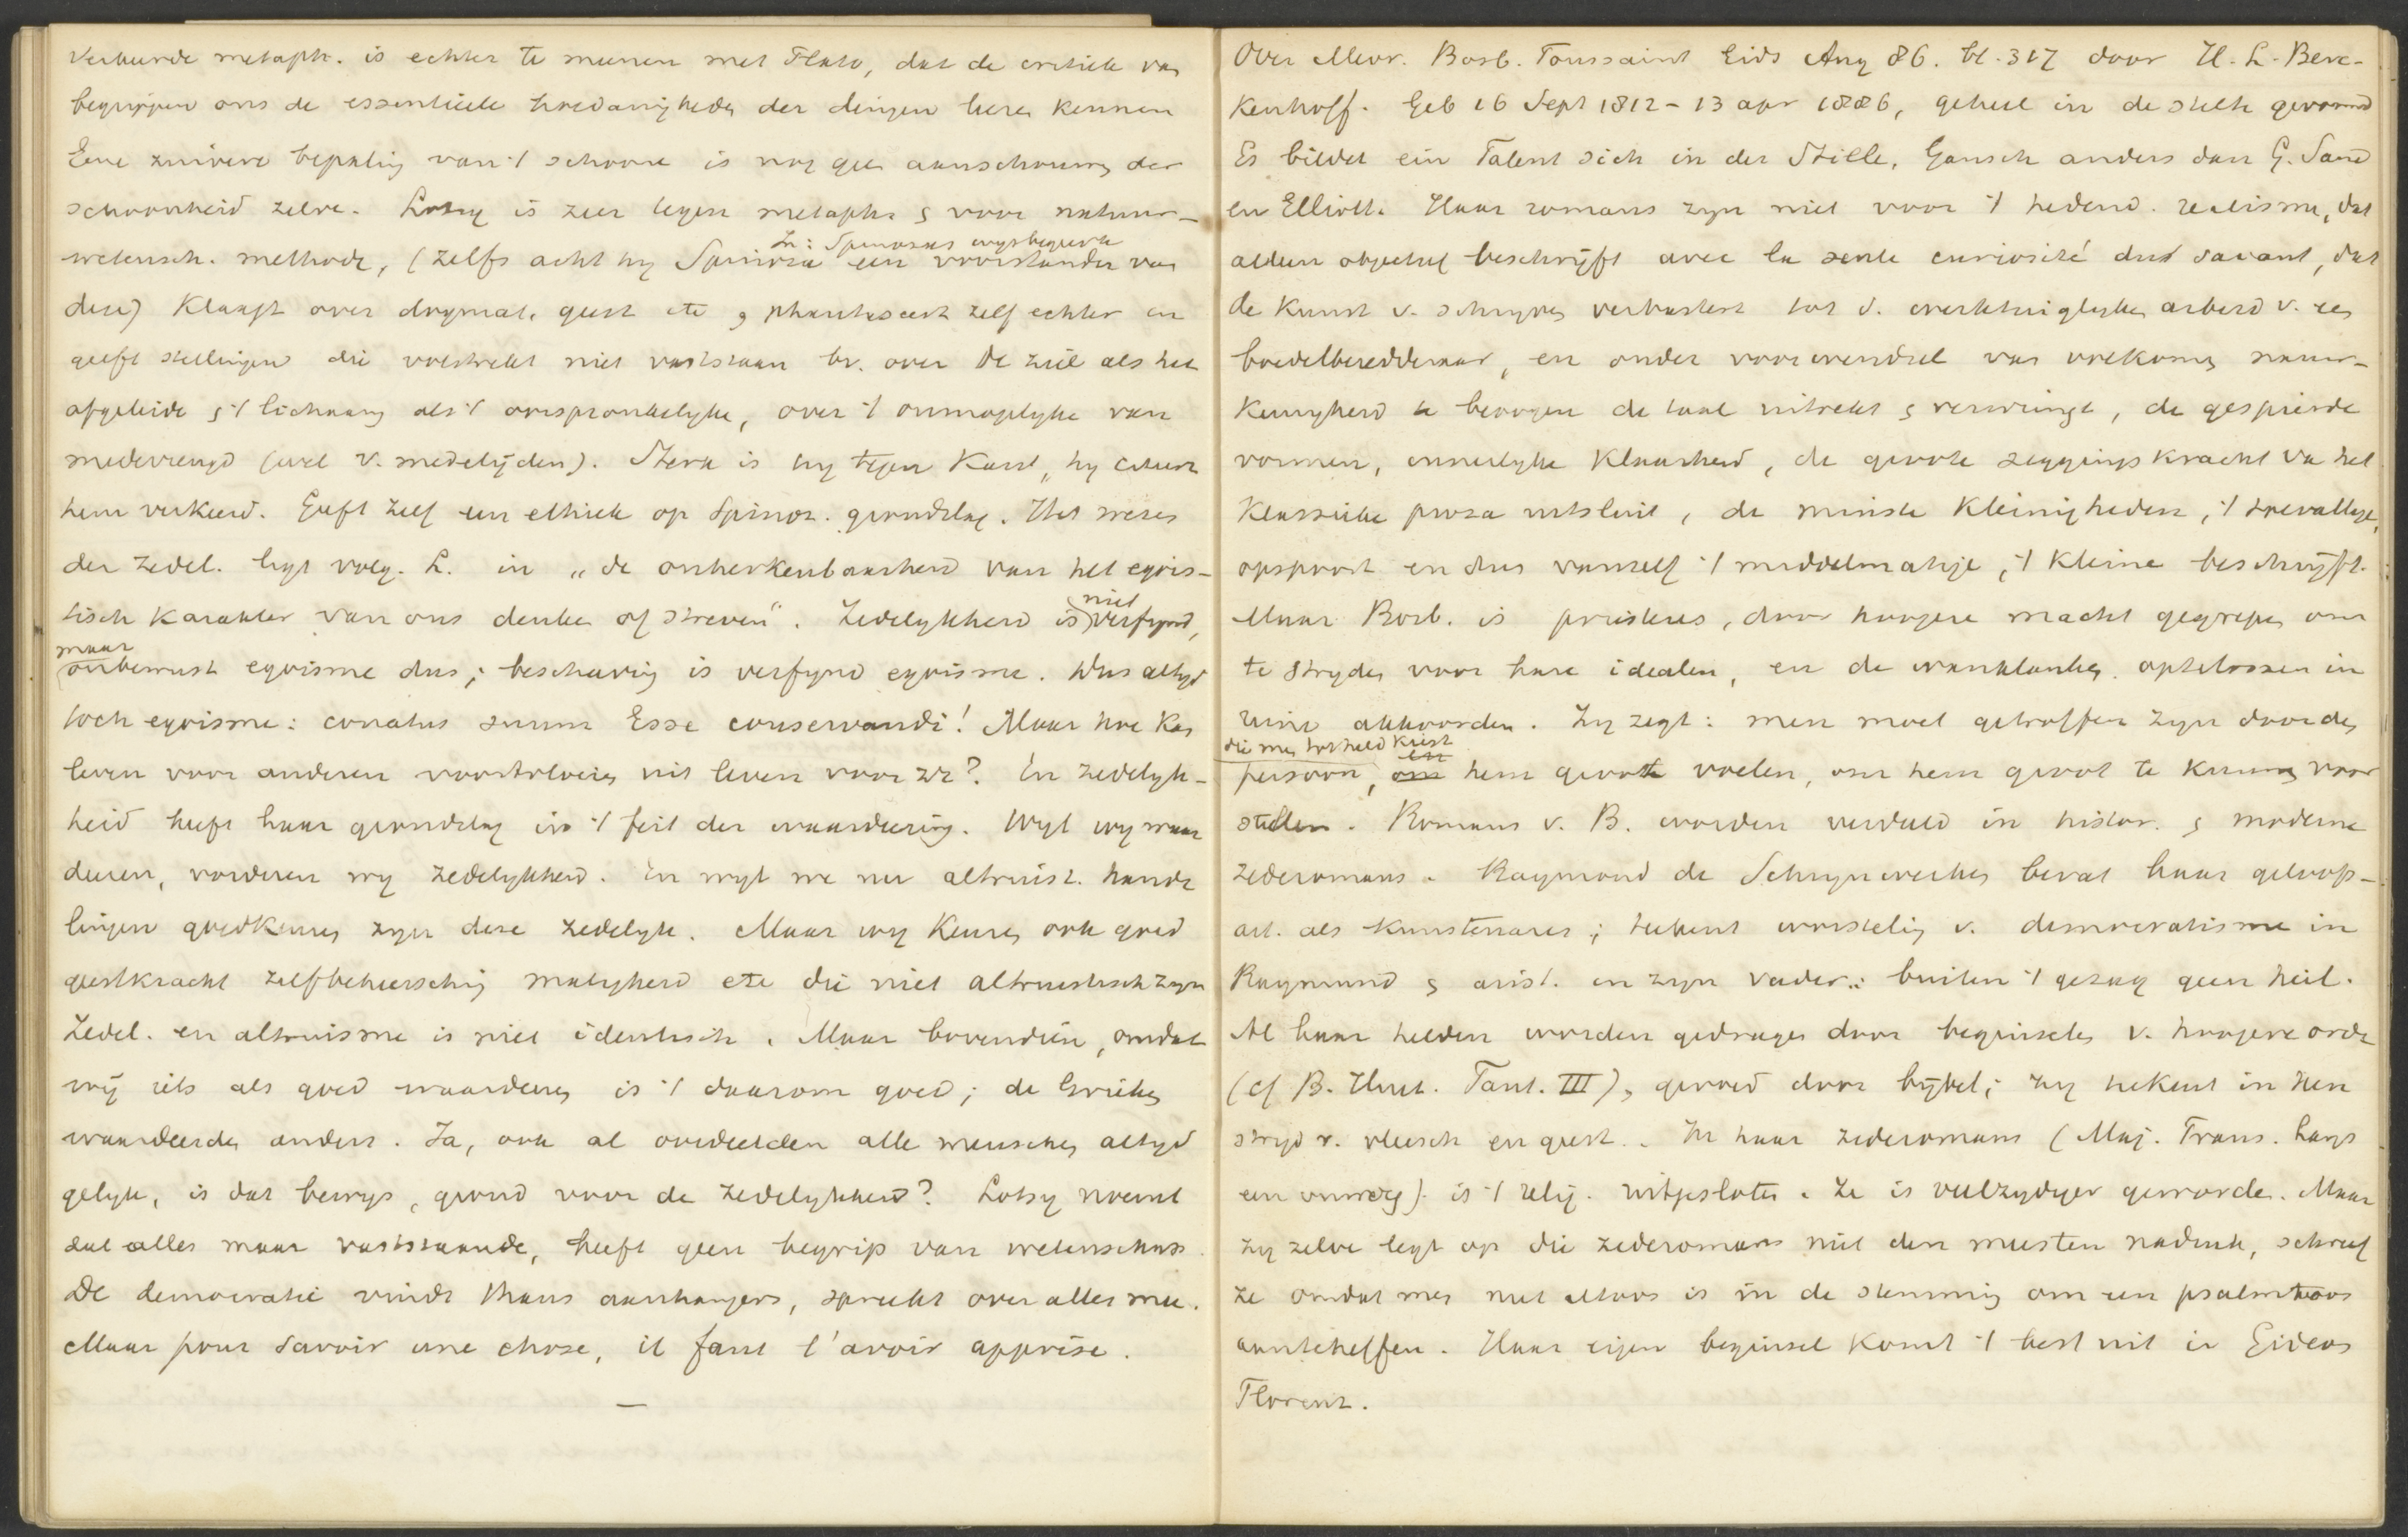 Verkeerde metaph. is echter te meenen met Plato, dat de critiek van
begrippen ons de essentieele hoedanigheden der dingen leeren kennen
Eene zuivere bepaling van 't schoone is nog geen aanschouwing der
schoonheid zelve. Lotsy is zeer tegen metaph. & voor natuur-
In: Spinozas wysbegeerte
wetensch. methode, (zelfs acht hy Spinoza een voorstander van
deze) Klaagt over dogmat. geest etc & phantaseert zelf echter en
geeft stellingen die volstrekt niet vaststaan bv. over de ziel als het
afgeleide & 't lichaam als 't oorspronkelyke, over 't onmogelyke van
medevreugd (wel v. medelijden). Sterk is hy tegen Kant, hy citeert
hem verkeerd. Geeft zelf een ethiek op Spinoz. grondslag. Het wezen
der zedel. ligt volg. L. in „de onherkenbaarheid van het egois-
tisch karakter van ons denken of streven". Zedelykheid is niet verfynd,
maar onbewust egoisme dus; beschaving is verfynd egoisme. Dus altyd
toch egoisme: conatus suum Esse conservandi! Maar hoe kan
leven voor anderen voortvloeien uit leven voor zz? En zedelyk-
heid heeft haar grondslag in 't feit der waardeering. Wyl wy waar
deeren, vorderen wy zedelykheid. En wyl we nu altruist. hande
lingen goedkeuren zyn deze zedelyk. Maar wy keuren ook goed
geestkracht zelfbeheersching matigheid etc die niet altruistisch zyn
Zedel. en altruisme is niet identisch. Maar bovendien, omdat
wij iets als goed waardeeren is 't daarom goed; de Grieken
waardeerden anders. Ja, ook al oordeelden alle menschen altyd
gelyk, is dat bewys, grond voor de zedelykheid? Lotsy noemt
dat alles maar vaststaande, heeft geen begrip van wetenschap.
De democratie vindt thans aanhangers, spreekt over alles mee.
Maar pour savoir une chose, il faut l'avoir apprise.
—
Over Mevr. Bosb. Toussaint Gids Aug 86. bl. 317 door H. L. Berc-
kenhoff. Geb 16 Sept 1812 - 13 apr 1886, geheel in de stilte gevormd
Es bildet ein Talent sich in der Stille, Gansch anders dan G. Sand
en Elliott. Haar romans zyn niet voor 't hedend. realisme, dat
alleen objectief beschrijft avec la seule curiosité du savant, dat
de kunst v. schryven verbastert tot d. werktuiglyken arbeid v. een
boedelberedderaar, en onder voorwendsel van volkomen nauw-
keurigheid te beoogen de taal uitrekt & verwringt, de gespierde
vormen, innerlyke klaarheid, de groote zeggingskracht van het
klassieke proza uitsluit, de minste kleinigheden, 't toevallige,
opspoort en dus vanzelf 't middelmatige, 't kleine beschrijft.
Maar Bosb. is priesteres, door hoogere macht gegrepen om
te stryden voor hare idealen, en de wanklanken optelossen in
reine akkoorden. Zy zegt: men moet getroffen zyn door den
die men tot held kiest en
persoon, om hem groot voelen, om hem groot te kunnen voor
stellen. Romans v. B. worden verdeeld in histor. & moderne
zederomans. Raymond de Schrynwerker bevat haar geloofs-
art. als kunstenares; teekent worsteling v. democratisme in
Raymond & arist. in zyn vader: buiten 't gezag geen heil.
Al haar helden worden gedragen door beginselen v. hoogere orde
(cf B. Huet. Fant. III), gevoed door bijbel; zy tekent in hen
stryd v. vleesch en geest. In haar zederomans (Maj. Frans. Langs
een omweg). is 't relig. uitgesloten. Ze is veelzydiger geworden. Maar
zy zelve legt op die zederomans niet den meesten nadruk, schreef
ze omdat men niet altoos is in de stemming om een psalmtoon
aanteheffen. Haar eigen beginsel komt 't best uit in Gideon
Florensz.